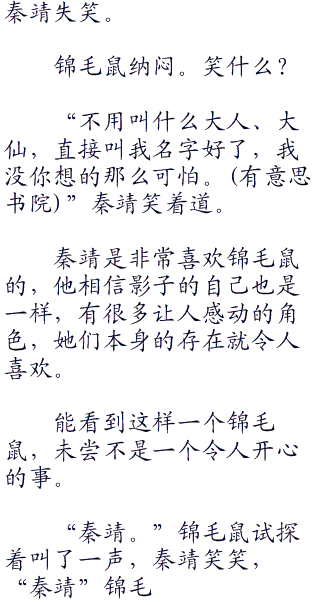 秦靖失笑。
锦毛鼠纳闷。笑什么？
“不用叫什么大人、大
仙，直接叫我名字好了，我
没你想的那么可怕。(有意思
书院)”秦靖笑着道。
秦靖是非常喜欢锦毛鼠
的，他相信影子的自己也是
一样，有很多让人感动的角
色，她们本身的存在就令人
喜欢。
能看到这样一个锦毛
鼠，未尝不是一个令人开心
的事。
“秦靖。”锦毛鼠试探
着叫了一声，秦靖笑笑，
“秦靖”锦毛